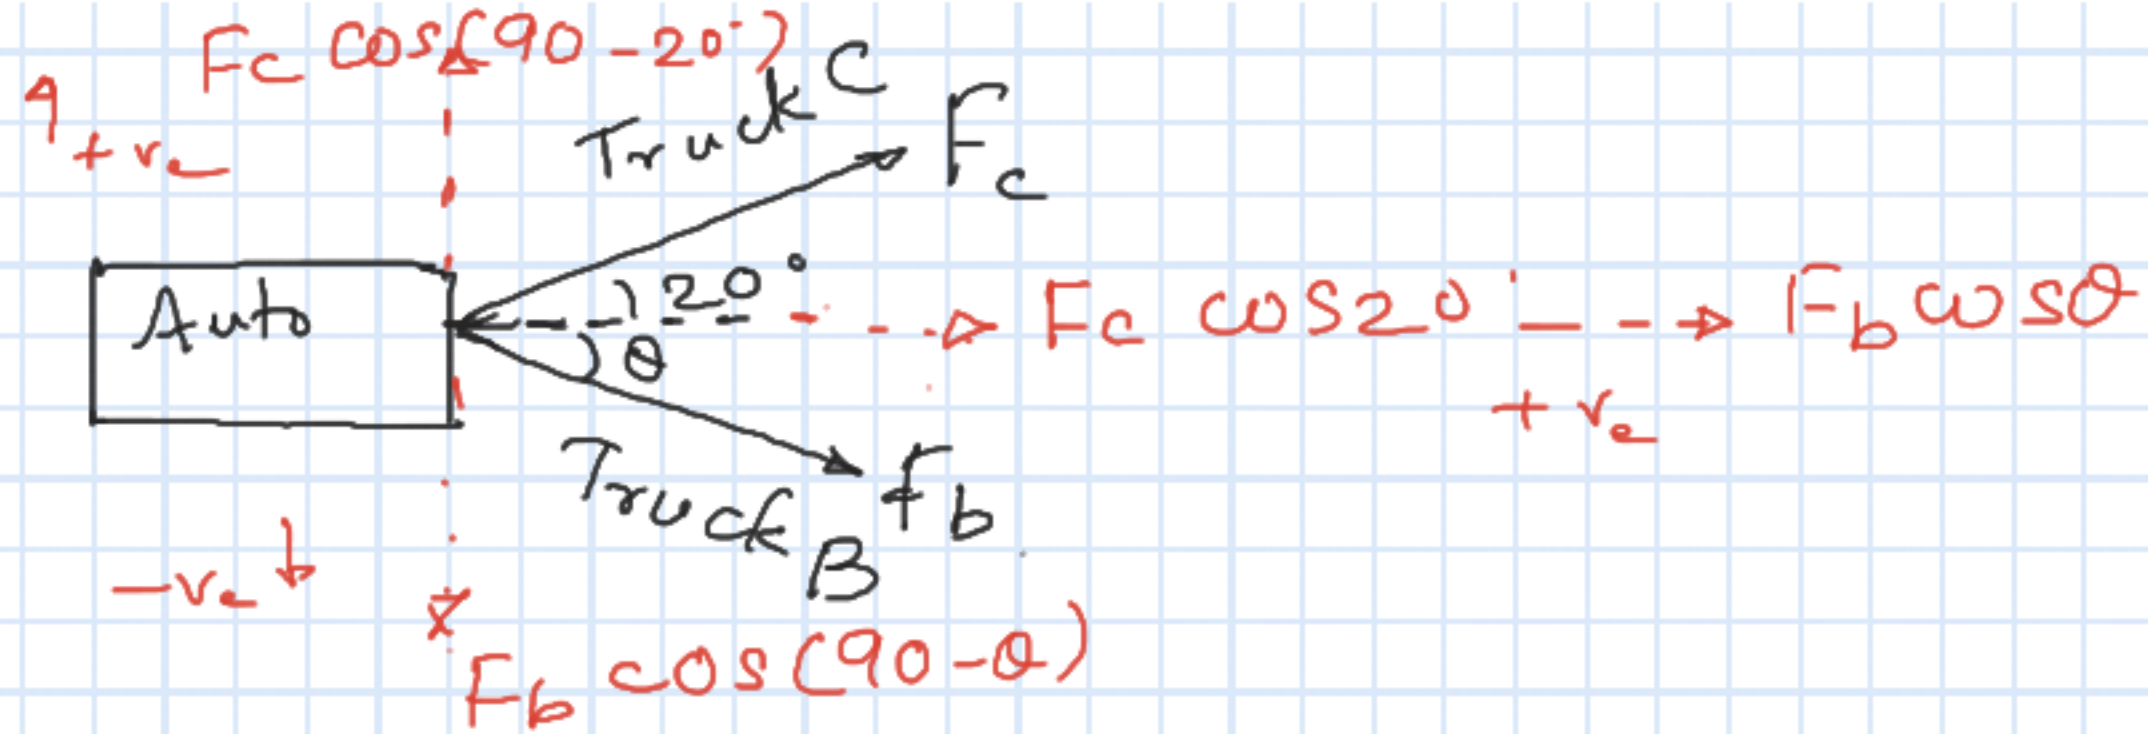 Fc cos(90-20°)
+ve
Truck C
Fc
Auto
20°
Fc cos20°
Fb cosθ
θ
+ve
Truck B
fb
-ve
Fb cos(90-θ)